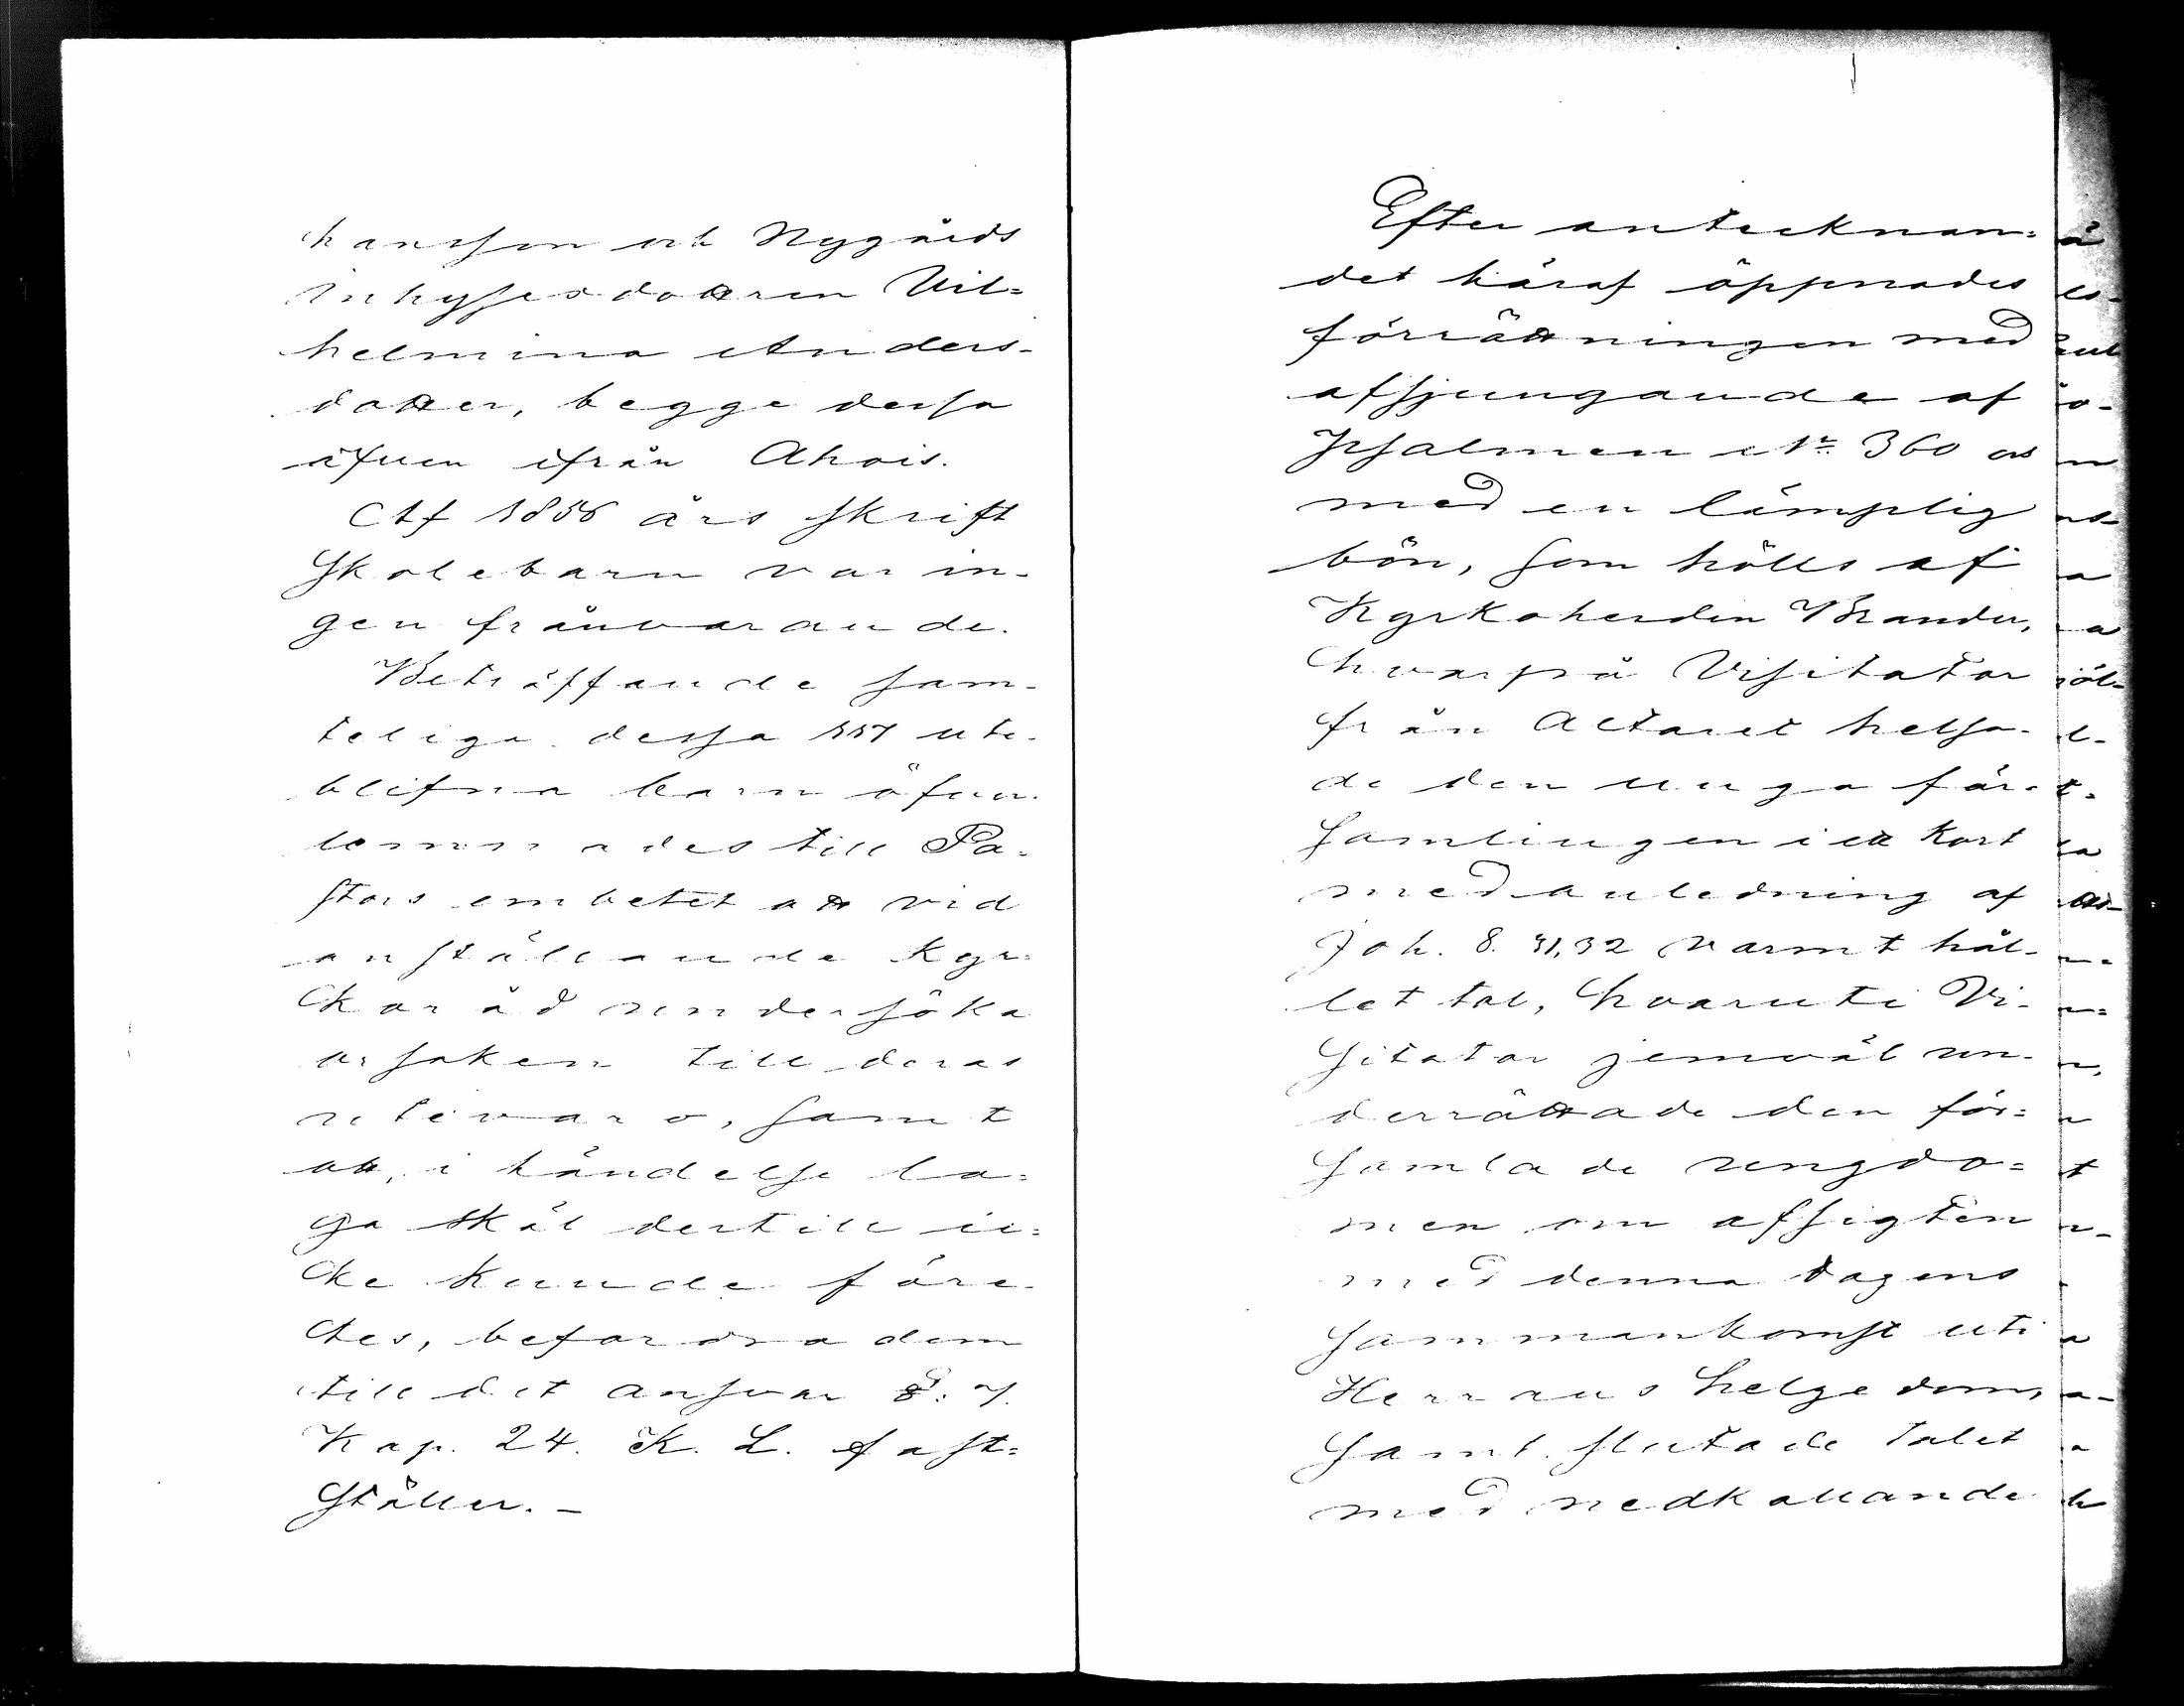 hansson och Nygårds
Inhysesdottren Vil=
helmina Anders-
dotter, begge dessa
äfven ifrån Ahois.
Af 1856 års skrift
skolebarn var in-
gen frånvarande.
Beträffande sam-
telige dessa 157 ute-
blifna barn öfver-
lemnades till Pa-
stors embetet att vid
anställande Kyr=
ckoråd undersöka
orsaken till deras
utevaro, samt
att, i händelse la=
ga skäl dertill ic=
ke kunde före-
tes, befordra dem
till det answar 8: 7.
Kap. 24. K. L. fast=
ställer. –
Efter antecknan=
det häraf öppnades
förrättningen med
afsjungande af
Psalmen Nr. 360 och
med en lämplig
bön, som hölls af
Kyrkoherden Brander,
hvarpå Visitator
från Altaret helsa-
de den unga för-
samlingen i ett kort
med anledning af
Joh. 8. 31,32 varmt hål-
let tal, hvaruti Vi-
sitator jemväl un-
derrättade den för=
samlade ungdo=
men om afsigten
med denna dagens
sammankomst uti
Herrans helgedom,
samt slutade talet
med nedkallande